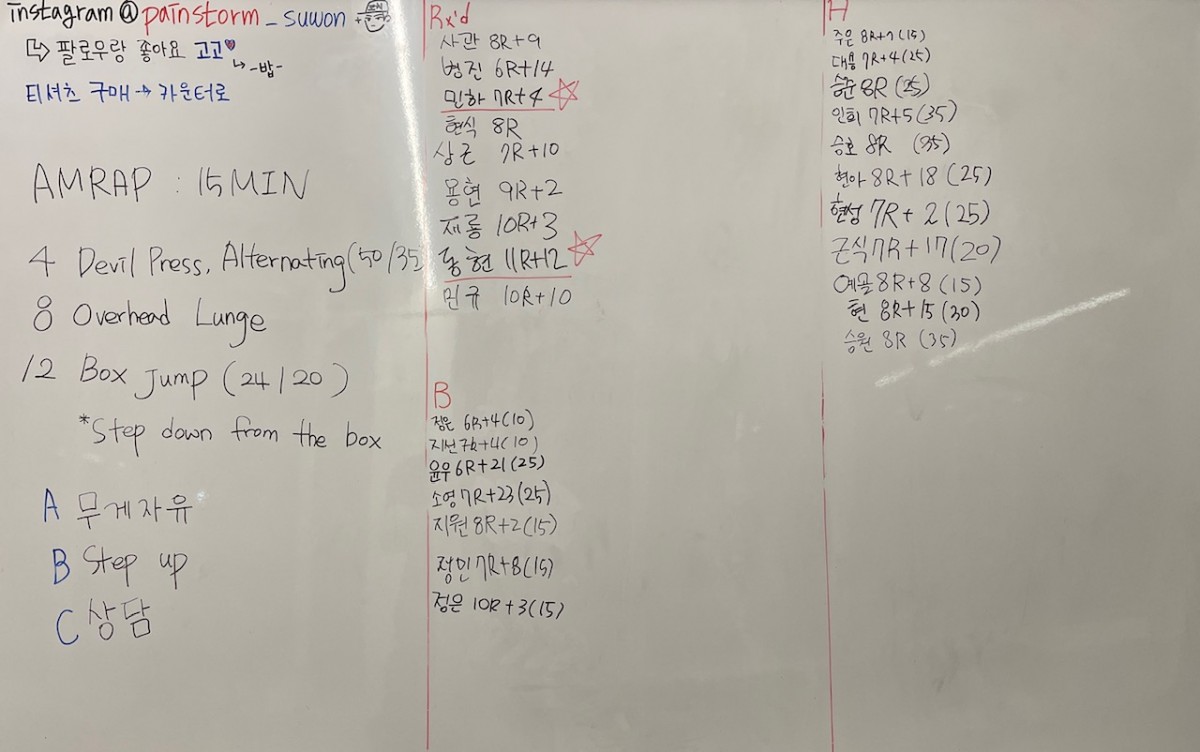 instagram@painstorm_suwon +
팔로우랑 좋아요 고고
-밥-
티셔츠 구매→카운터로
AMRAP : 15MIN
4 Devil Press, Alternating(50/35)
8 Overhead Lunge
12 Box Jump (24/20)
*Step down from the box
A 무게자유
B Step up
C 상담
Rx'd
사관 8R+9
병진 6R+14
민하 7R+4
현식 8R
상근 7R+10
용현 9R+2
재룡 10R+3
동현 11R+12
민규 10R+10
B
정은 6R+4(10)
지선 7R+4(10)
윤우 6R+21(25)
소영 7R+23(25)
지원 8R+2(15)
정민 7R+8(15)
정은 10R+3(15)
주은 8R+7(15)
대용 7R+4(25)
승준 8R (25)
인희 7R+5(35)
승호 8R (35)
현아 8R+18(25)
현성 7R+2(25)
근식 7R+17(20)
8R+8(15)
현 8R+15(30)
승원 8R (35)